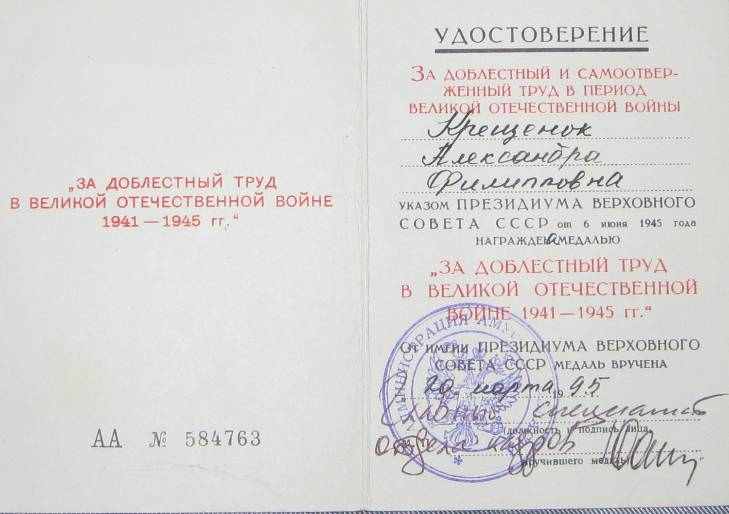 „ЗА ДОБЛЕСТНЫЙ ТРУД
В ВЕЛИКОЙ ОТЕЧЕСТВЕННОЙ ВОЙНЕ
1941—1945 гг.“
АА № 584763
УДОСТОВЕРЕНИЕ
ЗА ДОБЛЕСТНЫЙ И САМООТВЕР-
ЖЕННЫЙ ТРУД В ПЕРИОД
ВЕЛИКОЙ ОТЕЧЕСТВЕННОЙ ВОЙНЫ
Крещенок
Александра
Филипповна
УКАЗОМ ПРЕЗИДИУМА ВЕРХОВНОГО
СОВЕТА СССР от 6 июня 1945 года
НАГРАЖДЕНА МЕДАЛЬЮ
„ЗА ДОБЛЕСТНЫЙ ТРУД
В ВЕЛИКОЙ ОТЕЧЕСТВЕННОЙ
ВОЙНЕ 1941—1945 гг.“
ОТ ИМЕНИ ПРЕЗИДИУМА ВЕРХОВНОГО
СОВЕТА СССР МЕДАЛЬ ВРУЧЕНА
20 марта 1995
Главный специалист
(должность и подпись лица,
отдела кадров
вручившего медаль)
АДМИНИСТРАЦИЯ